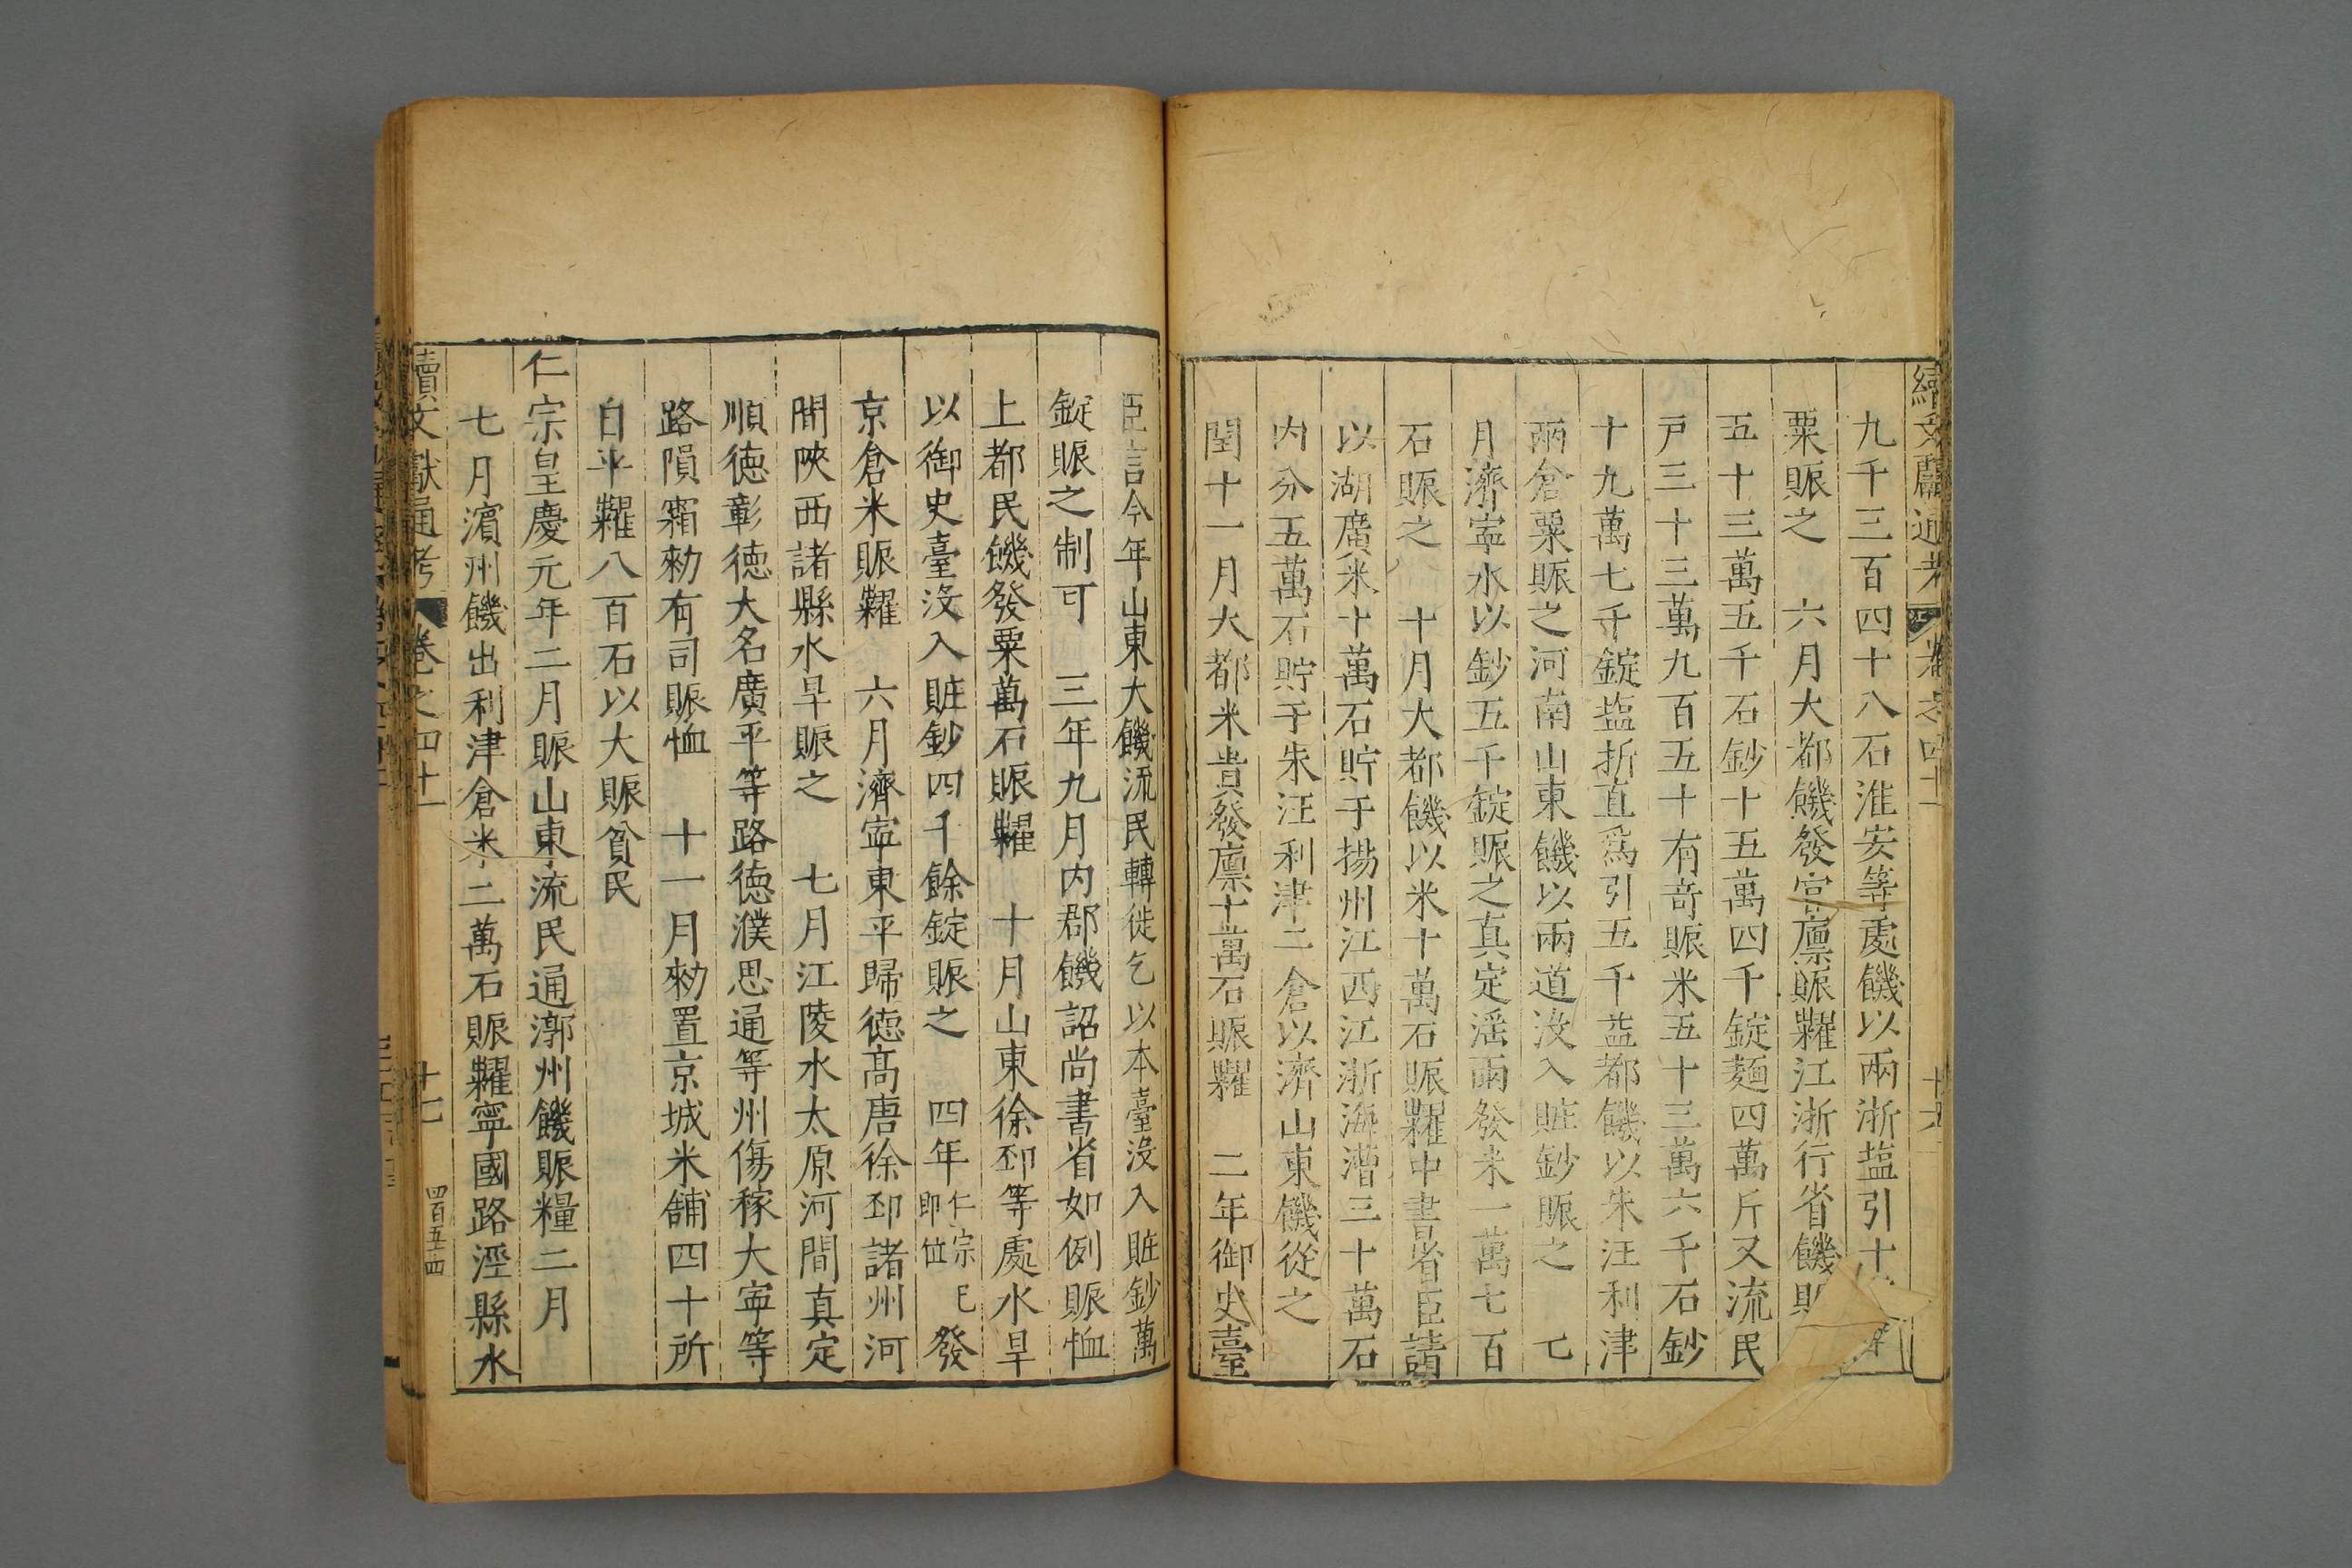 續文獻通考 卷之四十一 十六
九千三百四十八石淮安等處饑以兩浙塩引十
粟賑之 六月大都饑發官廪賑糶江浙行省饑賑
五十三萬五千石鈔十五萬四千錠麵四萬斤又流民
戸三十三萬九百五十有奇賑米五十三萬六千石鈔
十九萬七千錠塩折直爲引五千益都饑以朱汪利津
兩倉粟賑之河南山東饑以兩道没入賍鈔賑之 七
月濟寧水以鈔五千錠賑之真定淫雨發米一萬七百
石賑之 十月大都饑以米十萬石賑糶中書省臣請
以湖廣米十萬石貯于揚州江西江浙海漕三十萬石
内分五萬石貯于朱汪利津二倉以濟山東饑從之
閏十一月大都米貴發廪十萬石賑糶 二年御史臺
臣言今年山東大饑流民轉徙乞以本臺没入賍鈔萬
錠賑之制可 三年九月内郡饑詔尚書省如例賑恤
上都民饑發粟萬石賑糶 十月山東徐邳等處水旱
以御史臺没入賍鈔四千餘錠賑之 四年仁宗已即位發
京倉米賑糶 六月濟寧東平歸徳髙唐徐邳諸州河
間陜西諸縣水旱賑之 七月江陵水太原河間真定
順徳彰徳大名廣平等路徳濮恩通等州傷稼大寧等
路隕霜勑有司賑恤 十一月勑置京城米舖四十所
日平糶八百石以大賑貧民
仁宗皇慶元年二月賑山東流民通漷州饑賑糧二月
七月濱州饑出利津倉米二萬石賑糶寧國路涇縣水
續文獻通考 卷之四十一 十七 四百五十四